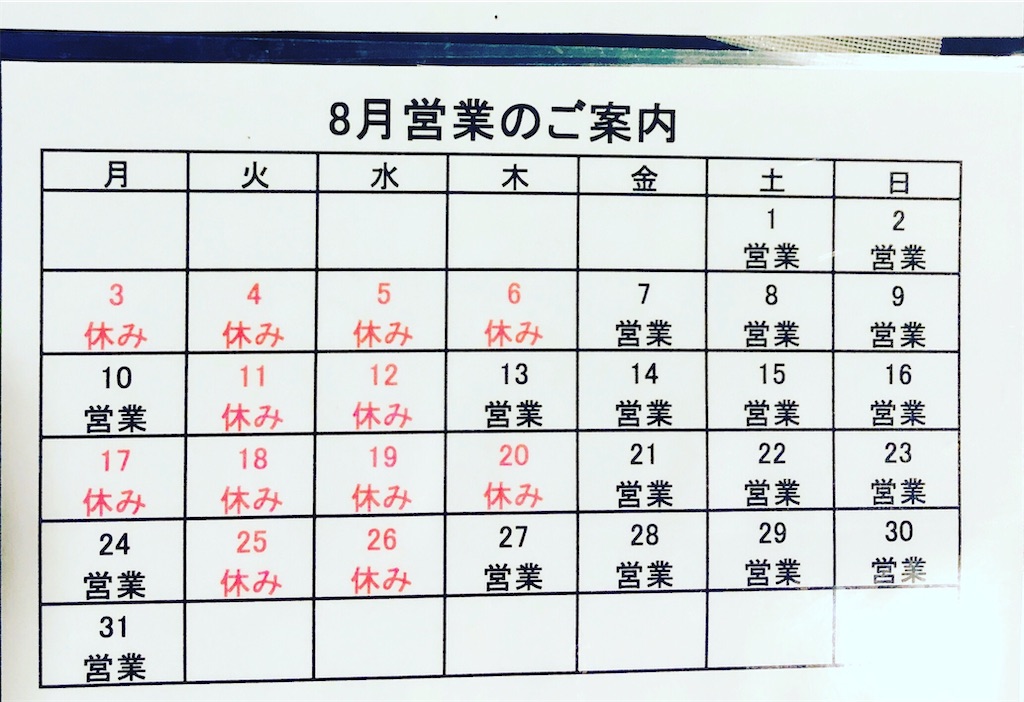 8月営業のご案内
月 火 水 木 金 土 日
1 2
営業 営業
3 4 5 6 7 8 9
休み 休み 休み 休み 営業 営業 営業
10 11 12 13 14 15 16
営業 休み 休み 営業 営業 営業 営業
17 18 19 20 21 22 23
休み 休み 休み 休み 営業 営業 営業
24 25 26 27 28 29 30
営業 休み 休み 営業 営業 営業 営業
31
営業